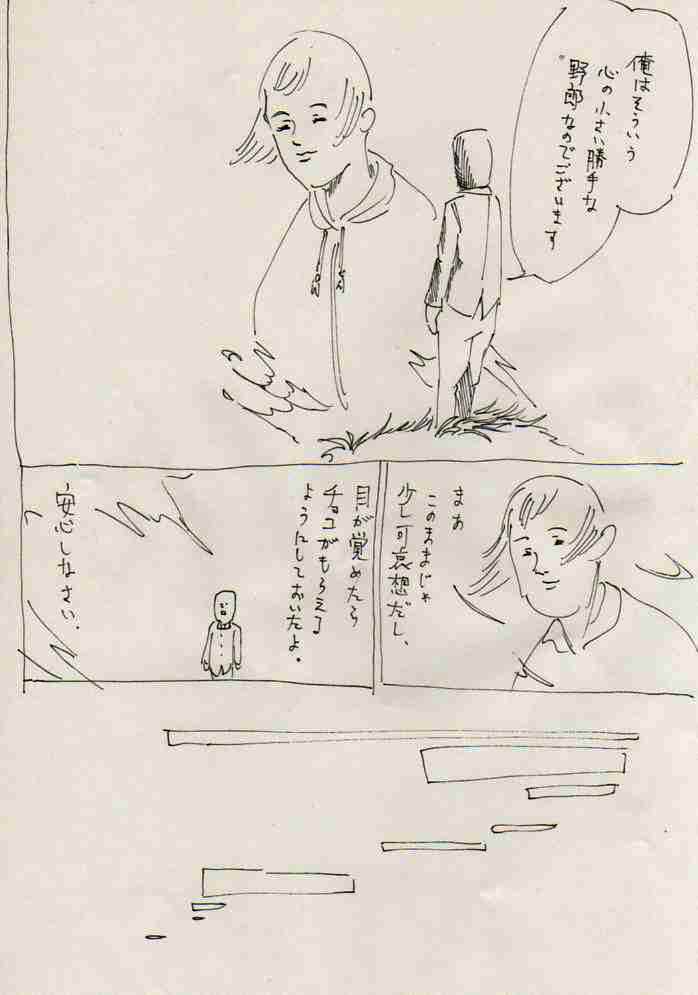 俺はそういう
心の小さい勝手な
野郎なのでございます
まあ
このままじゃ
少し可哀想だし、
目が覚めたら
チョコがもらえる
ようにしておいたよ。
安心しなさい.